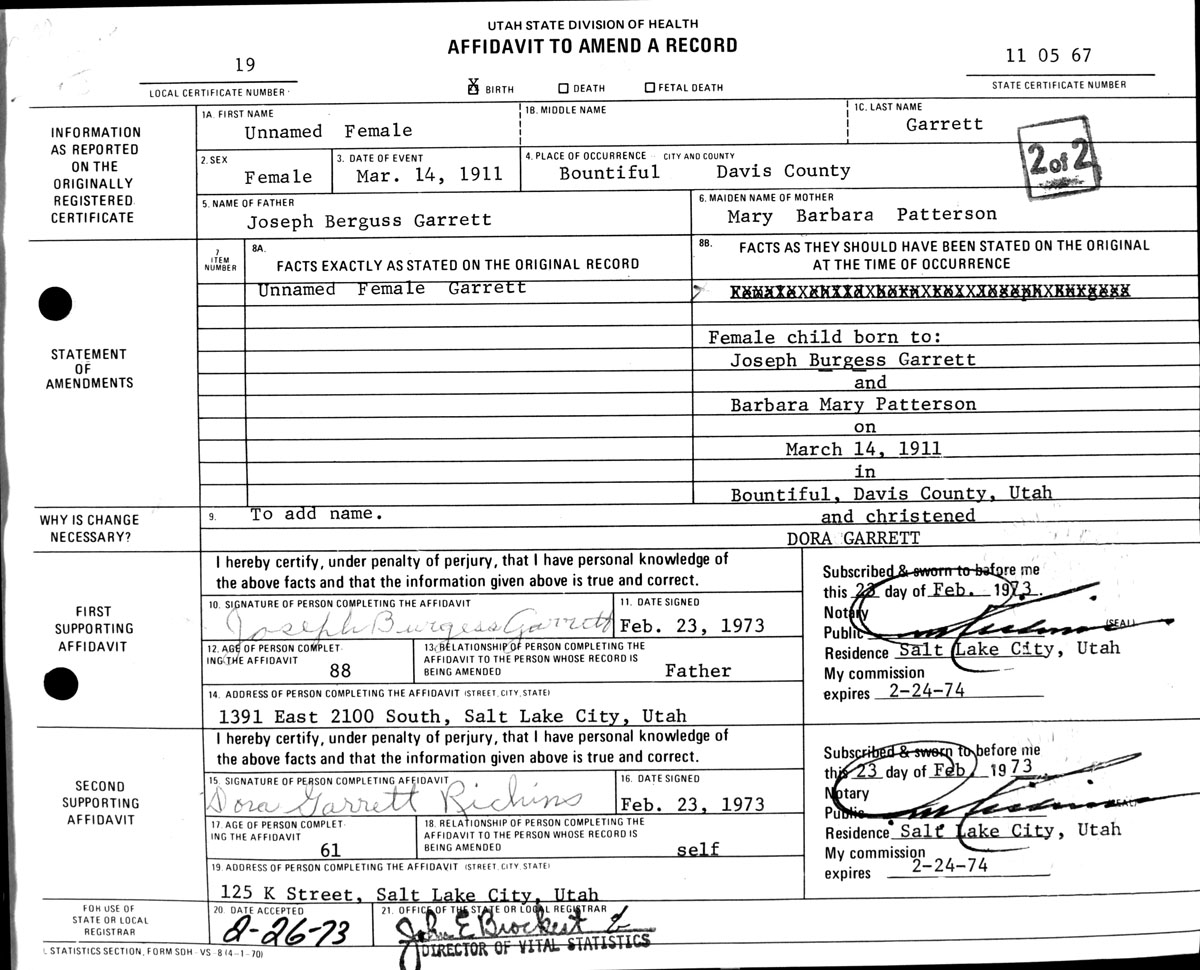 UTAH STATE DIVISION OF HEALTH
AFFIDAVIT TO AMEND A RECORD
19
LOCAL CERTIFICATE NUMBER
X BIRTH DEATH FETAL DEATH
11 05 67
STATE CERTIFICATE NUMBER
INFORMATION
AS REPORTED
ON THE
ORIGINALLY
REGISTERED
CERTIFICATE
1A. FIRST NAME
Unnamed Female
1B. MIDDLE NAME
1C. LAST NAME
Garrett
2 of 2
2. SEX
Female
3. DATE OF EVENT
Mar. 14, 1911
4. PLACE OF OCCURRENCE CITY AND COUNTY
Bountiful Davis County
5. NAME OF FATHER
Joseph Berguss Garrett
6. MAIDEN NAME OF MOTHER
Mary Barbara Patterson
STATEMENT
OF
AMENDMENTS
7
ITEM
NUMBER
8A.
FACTS EXACTLY AS STATED ON THE ORIGINAL RECORD
8B. FACTS AS THEY SHOULD HAVE BEEN STATED ON THE ORIGINAL
AT THE TIME OF OCCURRENCE
Unnamed Female Garrett
Female child born to:
Joseph Burgess Garrett
and
Barbara Mary Patterson
on
March 14, 1911
in
Bountiful, Davis County, Utah
and christened
DORA GARRETT
WHY IS CHANGE
NECESSARY?
9. To add name.
FIRST
SUPPORTING
AFFIDAVIT
I hereby certify, under penalty of perjury, that I have personal knowledge of
the above facts and that the information given above is true and correct.
10. SIGNATURE OF PERSON COMPLETING THE AFFIDAVIT
Joseph Burgess Garrett
11. DATE SIGNED
Feb. 23, 1973
12. AGE OF PERSON COMPLET-
ING THE AFFIDAVIT
88
13. RELATIONSHIP OF PERSON COMPLETING THE
AFFIDAVIT TO THE PERSON WHOSE RECORD IS
BEING AMENDED
Father
14. ADDRESS OF PERSON COMPLETING THE AFFIDAVIT (STREET, CITY, STATE)
1391 East 2100 South, Salt Lake City, Utah
Subscribed & sworn to before me
this 23 day of Feb. 1973.
Notary
Public
(SEAL)
Residence Salt Lake City, Utah
My commission
expires 2-24-74
SECOND
SUPPORTING
AFFIDAVIT
I hereby certify, under penalty of perjury, that I have personal knowledge of
the above facts and that the information given above is true and correct.
15. SIGNATURE OF PERSON COMPLETING AFFIDAVIT
Dora Garrett Richins
16. DATE SIGNED
Feb. 23, 1973
17. AGE OF PERSON COMPLET-
ING THE AFFIDAVIT
61
18. RELATIONSHIP OF PERSON COMPLETING THE
AFFIDAVIT TO THE PERSON WHOSE RECORD IS
BEING AMENDED
self
19. ADDRESS OF PERSON COMPLETING THE AFFIDAVIT (STREET, CITY, STATE)
125 K Street, Salt Lake City, Utah
Subscribed & sworn to before me
this 23 day of Feb, 1973
Notary
Public
(SEAL)
Residence Salt Lake City, Utah
My commission
expires 2-24-74
FOR USE OF
STATE OR LOCAL
REGISTRAR
20. DATE ACCEPTED
2-26-73
21. OFFICE OF THE STATE OR LOCAL REGISTRAR
John E Brockert
DIRECTOR OF VITAL STATISTICS
STATISTICS SECTION, FORM SDH - VS - 8 (4-1-70)